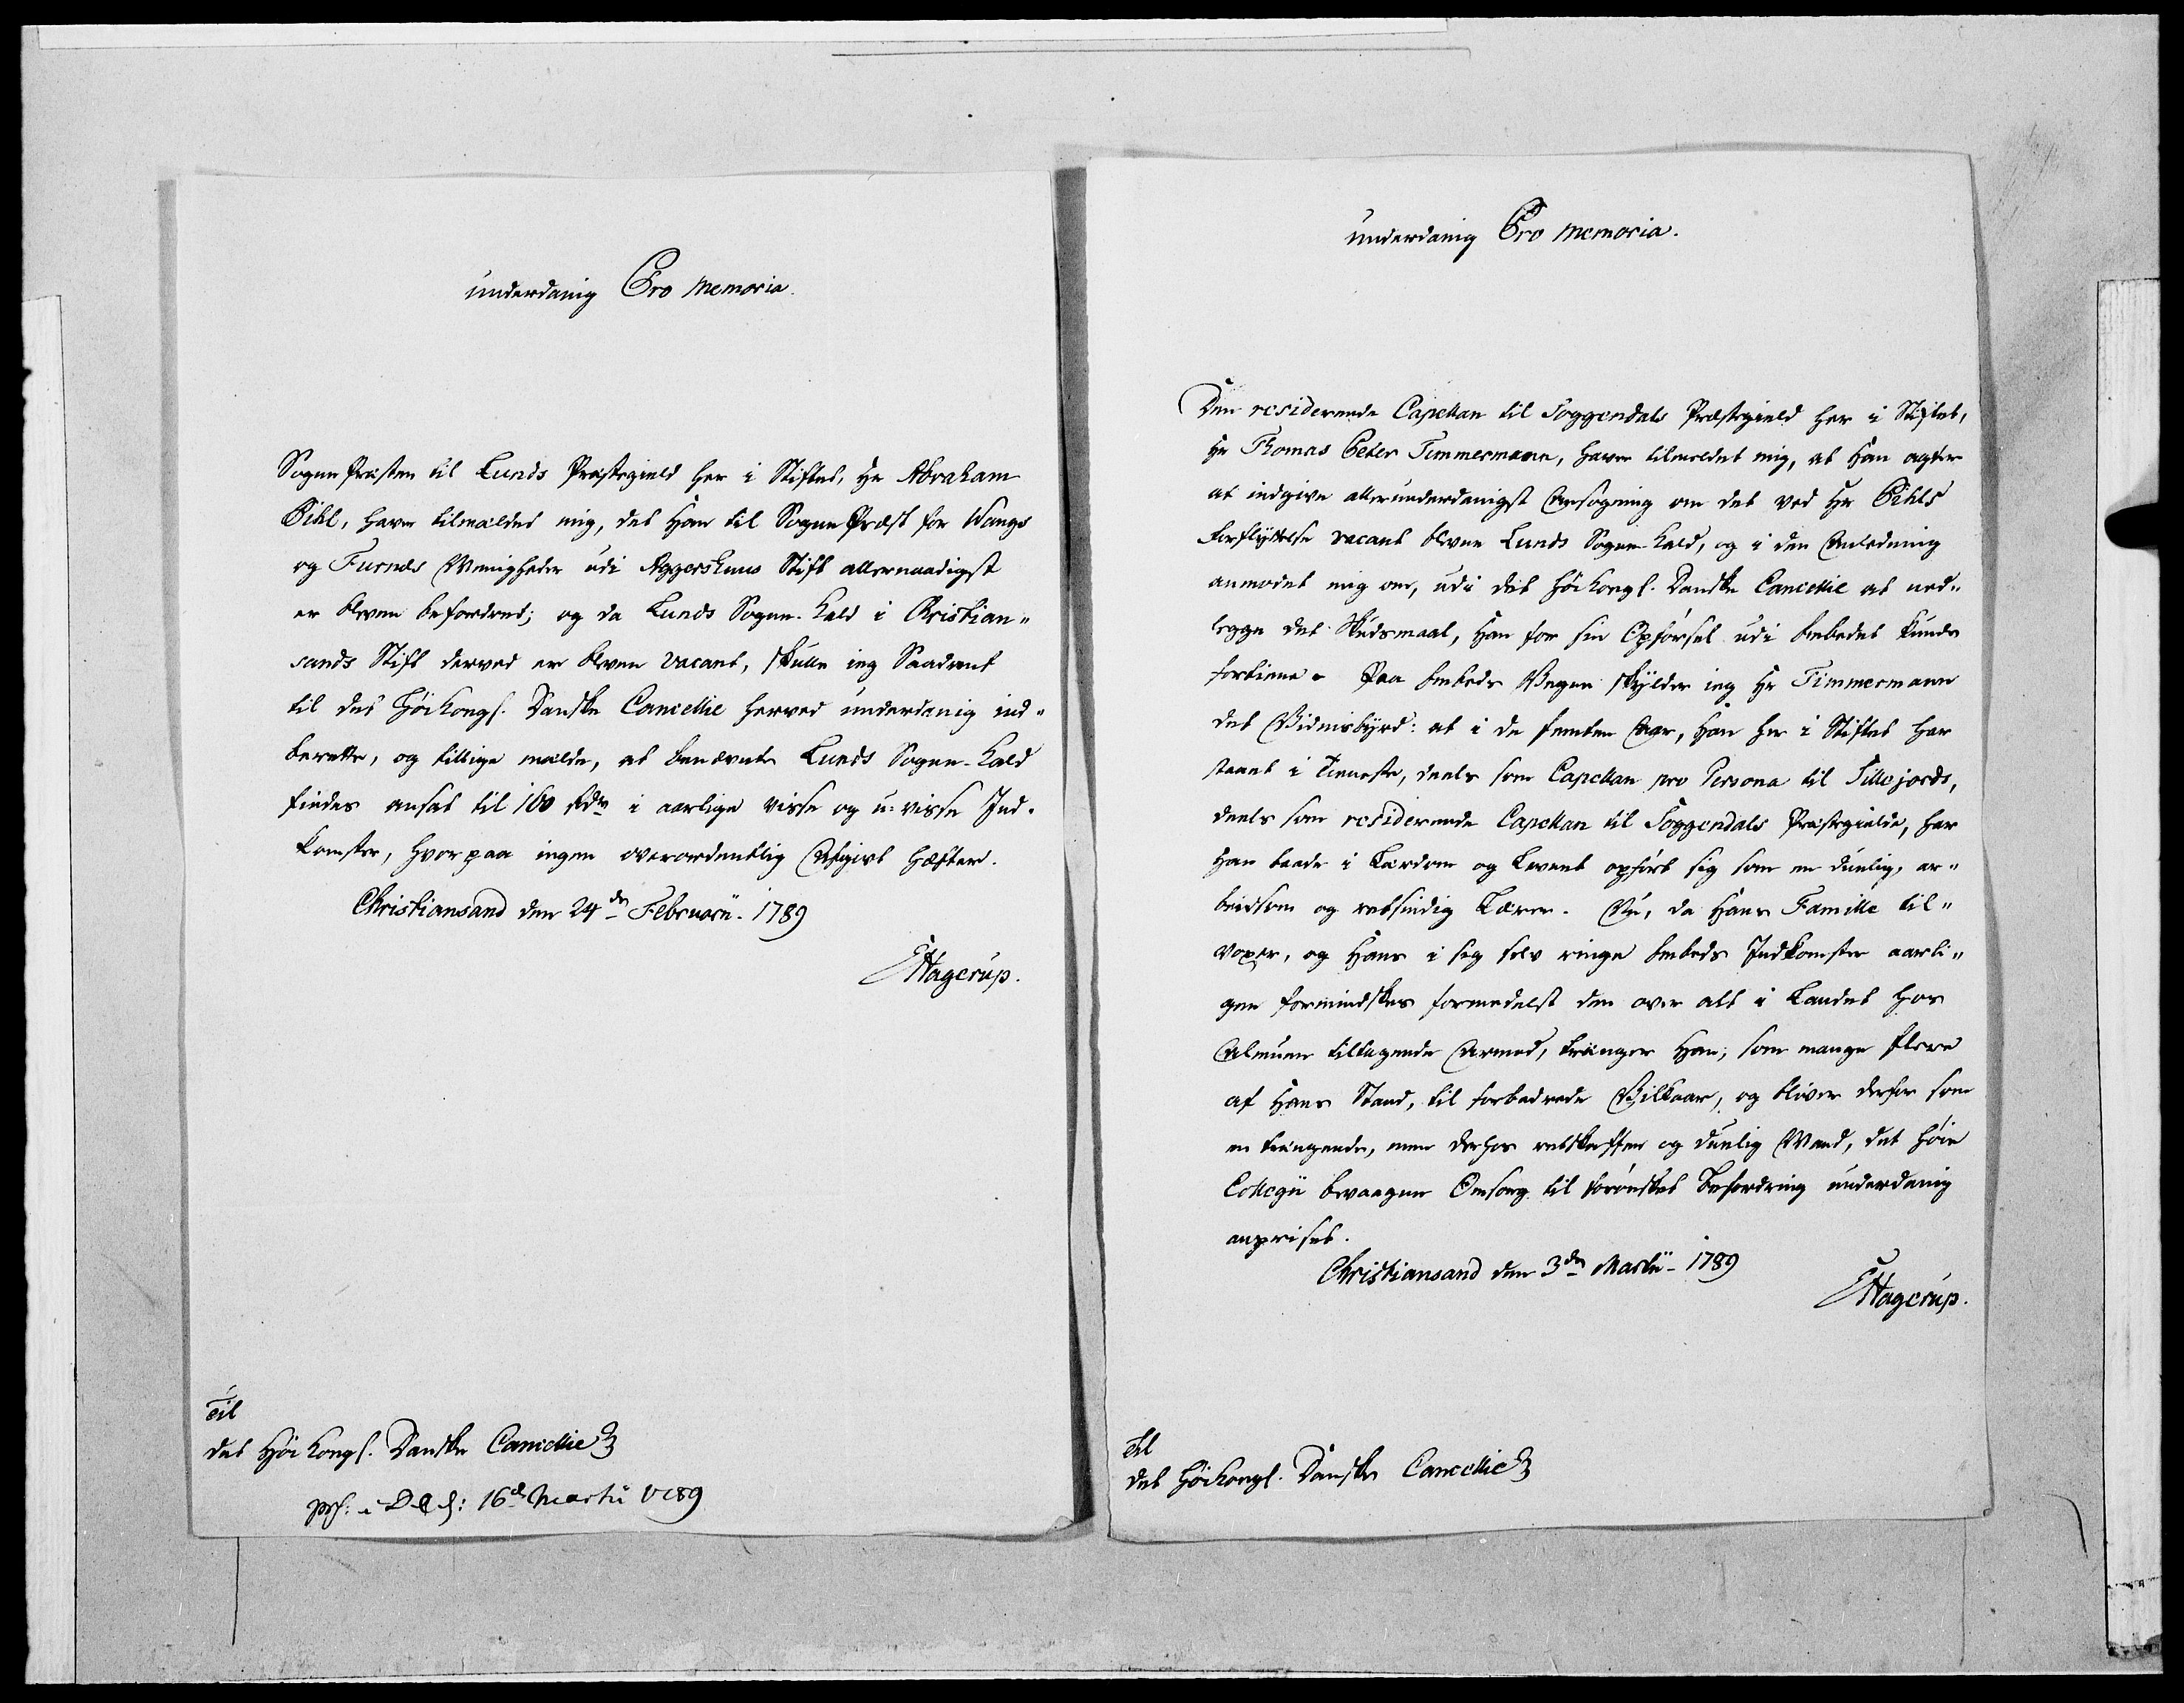 underdanig Pro Memoria.
Sogne Præsten til Lunds Præstegield her i Stiftet, Hr Abraham
Pihl, haver tilmældet mig, det Han til Sogne Præst for Wangs
og Furnæs Menigheder udi Aggershuus Stift allernaadigst
er bleven befordret; og da Lunds Sogne-Kald i Christian„
sands Stift derved er bleven vacant, skulle ieg Saadant
til det Høikongl. Danske Cancellie herved underdanig ind„
berette, og tillige melde, at benævnte Lunds Sogne-Kald
findes ansat til 160 Rdr i aarlige visse og u-visse Ind-
komster, hvorpaa ingen overordentlig Afgivt hæfter.
Christiansand den 24de Februarii 1789
EHagerup.
Til
det Høikongl. Danske Cancellie
16de Martii 1789
underdanig Pro Memoria.
Den residerende Capellan til Soggendals Præstegield her i Stiftet,
Hr Thomas Peter Timmermann, haver tilmeldet mig, at Han agter
at indgive allerunderdanigst Ansøgning om det ved Hr Pihls
Forflyttelse vacant blevne Lunds Sogne-Kald, og i den Anledning
anmodet mig om, udi det Høikongl. Danske Cancellie at ned„
legge det Skudsmaal, Han for sin Opførsel udi Embedet kunde
fortiene. Paa Embeds Vegne skylder ieg Hr Timmermann
det Vidnisbyrd: at i de femten Aar, Han her i Stiftet har
staaet i Tieneste, deels som Capellan pro Persona til Tillejords,
deels som residerende Capellan til Soggendals Præstegielde, har
Han baade i Lærdom og Levnet opført sig som en duelig, ar„
beidsom og retsindig Lærer. Nu, da Hans Famille til„
voxer, og Hans i sig selv ringe Embeds Indkomster aarli„
gen formindskes formedelst den over alt i Landet hos
Almuen tiltagende Armod, trænger Han, som mange flere
af Hans Stand, til forbedrede Vilkaar, og bliver derfor som
en trængende, men derhos retskaffen og duelig Mand, det høie
Collegii bevaagne Omsorg til forønsket Befordring underdanig
anpriset.
Christiansand den 3de Martii 1789
EHagerup.
Til
det Høikongl. Danske Cancellie